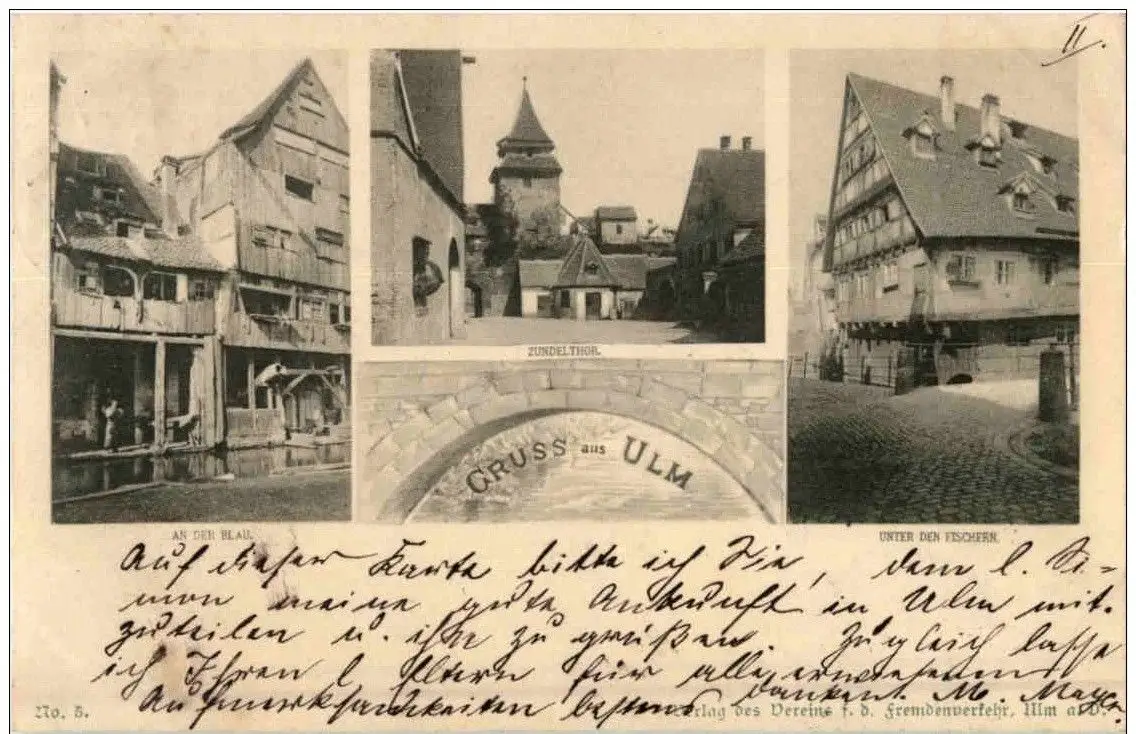 II.
ZUNDELTHOR.
GRUSS aus ULM
AN DER BLAU.
UNTER DEN FISCHERN.
Auf dieser Karte bitte ich Sie, dem l. Si=
mon meine gute Ankunft in Ulm mit-
zuteilen u. ihn zu grüßen. Zugleich lasse
ich Ihren l. Eltern für alle erwiesenen
Aufmerksamkeiten bestens danken. M. Mayer.
No. 5. Verlag des Vereins f. d. Fremdenverkehr, Ulm a. D.